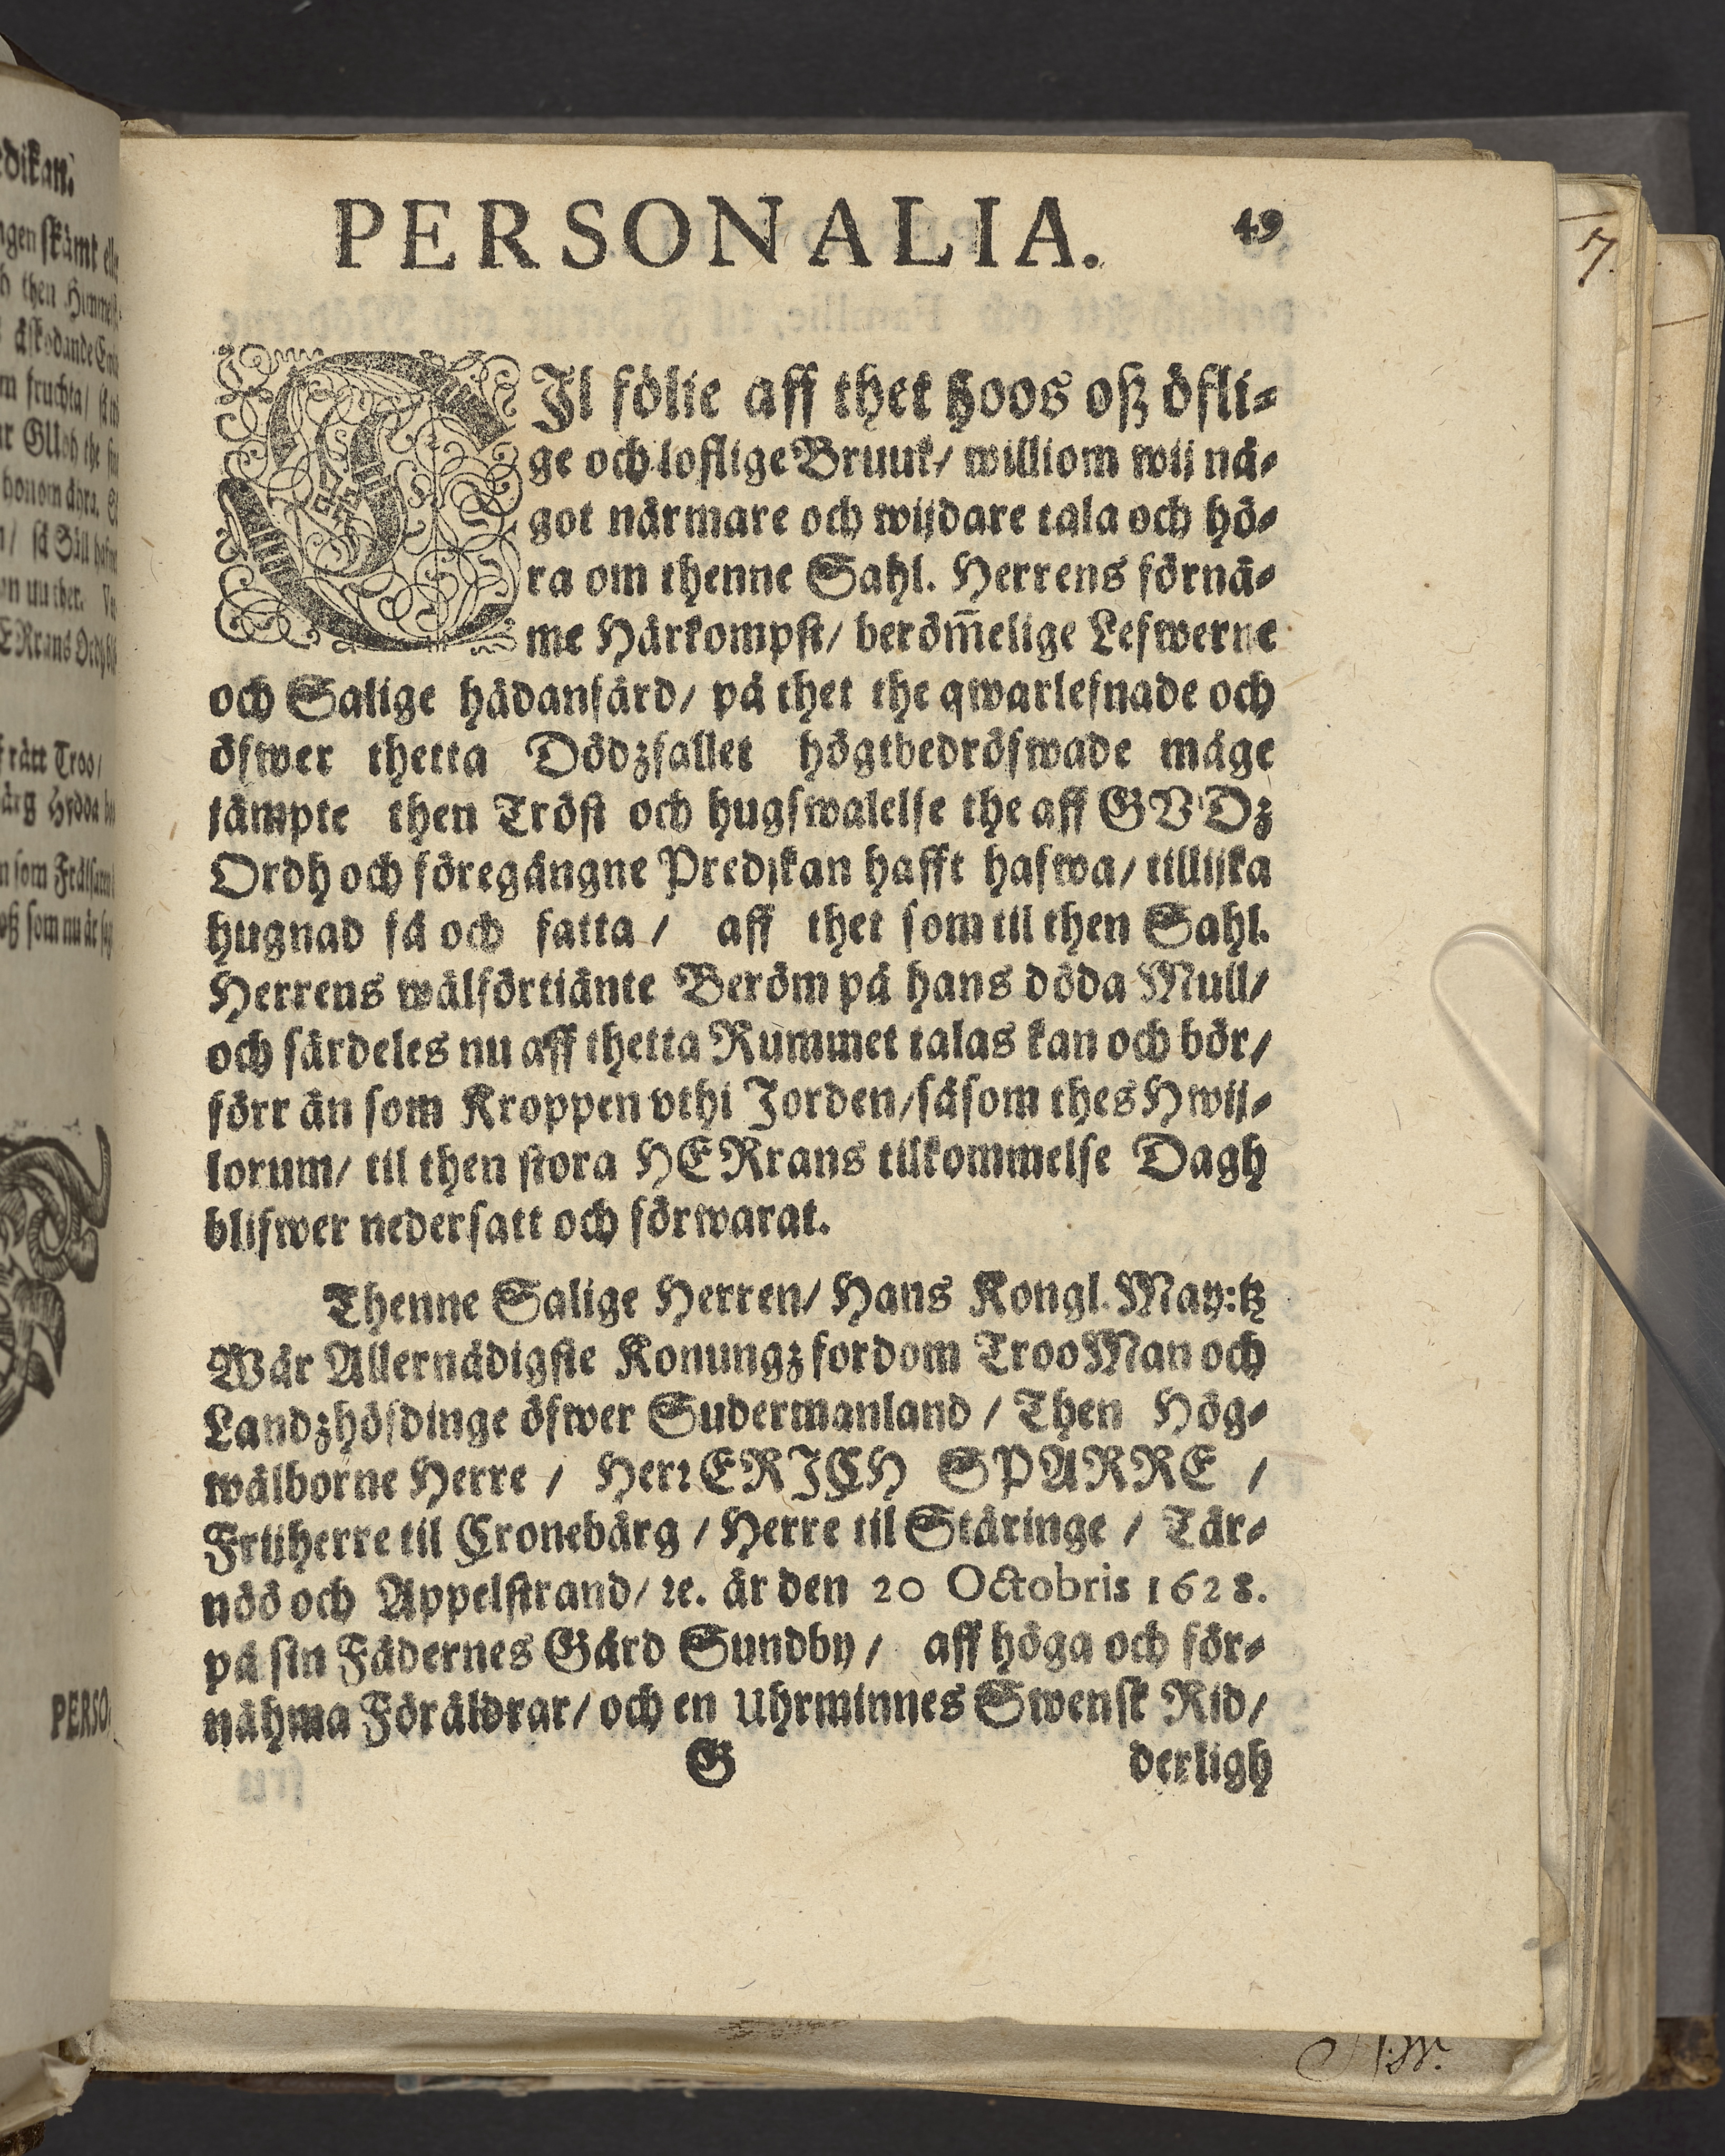 PERSONALIA. 49
TIl fölie aff thet hoos oß öfli-
ge och loflige Bruuk/ williom wij nå-
got närmare och wijdare tala och hö-
ra om thenne Sahl. Herrens förnä-
me Härkompst/ beröm̄elige Lefwerne
och Salige hädanfärd/ på thet the qwarlefnade och
öfwer thetta Dödzfallet högtbedröfwade måge
jämpte then Tröst och hugswalelse the aff GVDz
Ordh och föregångne Predjkan hafft hafwa/ tillijka
hugnad få och fatta / aff thet som til then Sahl.
Herrens wälförtiänte Beröm på hans döda Mull/
och särdeles nu aff thetta Rummet talas kan och bör/
förr än som Kroppen vthi Jorden/ såsom thes Hwij-
lorum/ til then stora HERrans tilkommelse Dagh
blifwer nedersatt och förwarat.
Thenne Salige Herren/ Hans Kongl. May:tz
Wår Allernådigste Konungz fordom Troo Man och
Landzhöfdinge öfwer Sudermanland / Then Hög-
wälborne Herre / Herꝛ ERICH SPARRE /
Frijherre til Cronebärg / Herre til Stäringe / Tär-
nöö och Appelstrand/ ꝛc. är den 20 Octobris 1628.
på sin Fädernes Gård Sundby / aff höga och för-
nähma Föräldrar/ och en Uhrminnes Swensk Rid/
G derligh
7.
dikan.
ngen skämt
then
fruchta/
GUdh the
honom ähra.
/ så Säll
rätt Troo/
Hydda
som
oß som nu är
PERSO